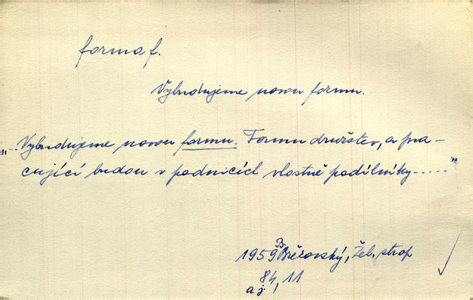 forma f.
Vybudujeme novou formu.
"..Vybudujeme novou formu. Formu družstev, a pra-
cující budou v podnicích vlastně podílníky....."
1959 Břězovský, Žel. strop
84, 11
aj